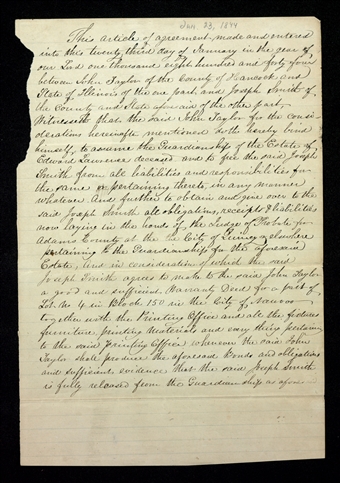 Jan. 23, 1844
This article of agreement made and entered
into this twenty third day of January in the year of
our Lord one thousand eight hundred and forty four
between John Taylor of the County of Hancock and
State of Illinois of the one part, and Joseph Smith of
the County and State aforesaid of the other part,
Witnesseth that the said John Taylor for the consid-
erations hereinafter mentioned doth hereby bind
himself, to assume the Guardianship of the Estate of
Edward Lawrence deceased and to free the said Joseph
Smith from all liabilities and responsibilities for
the same or pertaining thereto, in any manner
whatever. And further to obtain and give over to the
said Joseph Smith all obligations, receipts & liabilities
now laying in the hands of the Judge of Probate, for
Adams County at the City of Quincy or elsewhere
pertaining to the Guardianship for the aforesaid
Estate, And in consideration of which the said
Joseph Smith agrees to make to the said John Taylor
a good and sufficient Warranty Deed for a part of
Lot No 4 in Block 150 in the City of Nauvoo,
together with the Printing Office and all the fixtures
furniture, printing Materials and every thing pertaining
to the said Printing Office whenever the said John
Taylor shall produce the aforesaid Bonds and obligations
and sufficient evidence that the said Joseph Smith
is fully released from the Guardianship as afore